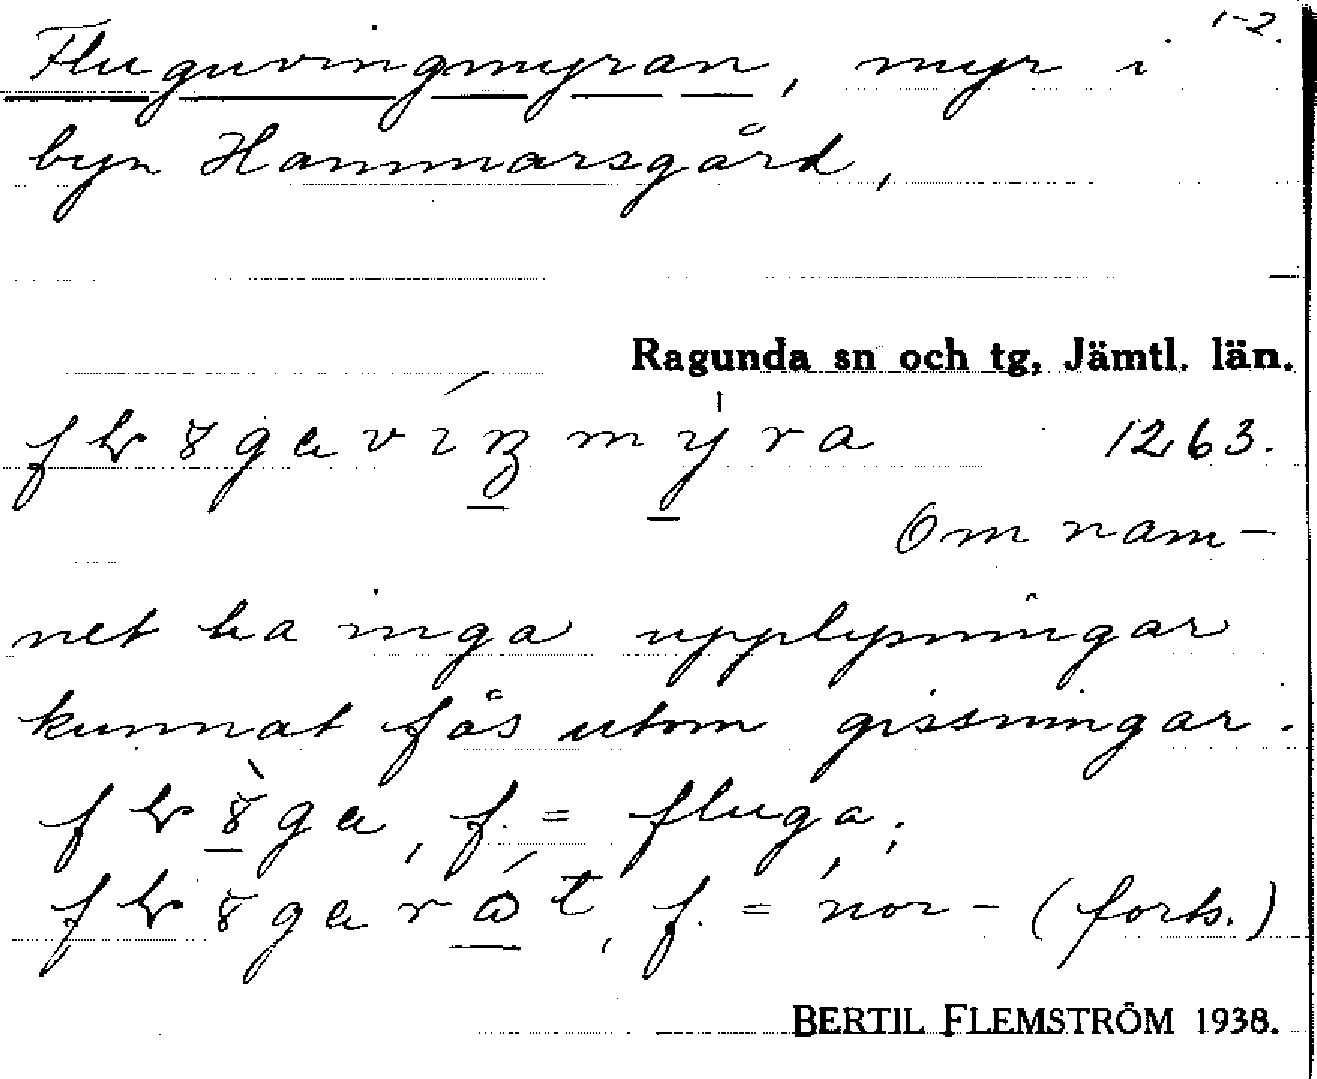 1-2.
Fluguvingmyran, myr i
byn Hammarsgård,
Ragunda sn och tg, Jämtl. län.
1263.
Om nam-
net ha inga upplysningar
kunnat fås utom gissningar.
f. = fluga;
f. = nor- (forts.)
BERTIL FLEMSTRÖM 1938.